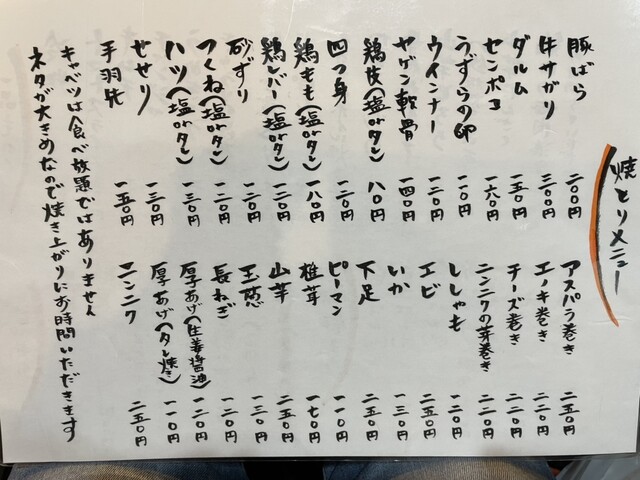 焼とりメニュー
豚ばら 二〇〇円
牛サガリ 三〇〇円
ダルム 一五〇円
センポコ 一六〇円
うずらの卵 一〇〇円
ウインナー 一二〇円
ヤゲン軟骨 一四〇円
鶏皮(塩orタレ) 八〇円
四つ身 一二〇円
鶏もも(塩orタレ) 一八〇円
鶏レバー(塩orタレ) 一二〇円
砂ずり 一二〇円
つくね(塩orタレ) 一二〇円
ハツ(塩orタレ) 一三〇円
せせり 一三〇円
手羽先 一五〇円
アスパラ巻き 二五〇円
エノキ巻き 二二〇円
チーズ巻き 二二〇円
ニンニクの芽巻き 二二〇円
ししゃも 一二〇円
エビ 二五〇円
いか 一三〇円
下足 二五〇円
ピーマン 一一〇円
椎茸 一七〇円
山芋 二五〇円
玉葱 一三〇円
長ねぎ 一二〇円
厚あげ(生姜醤油) 一二〇円
厚あげ(タレ焼き) 一一〇円
ニンニク 二五〇円
キャベツは食べ放題ではありません
ネタが大きめなので焼き上がりにお時間いただきます